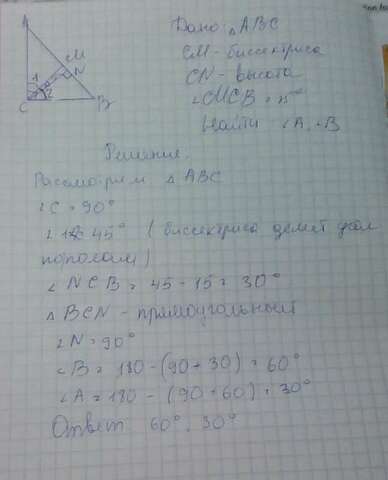 A
M
N
1
2
C
B
Дано: △ABC
CM - биссектриса
CN - высота
∠MCB = 15°
Найти ∠A, ∠B
Решение.
Рассмотрим △ABC
∠C = 90°
45° (биссектриса делит угол
пополам)
∠NCB = 45 - 15 = 30°
△BCN - прямоугольный
∠N = 90°
∠B = 180 - (90 + 30) = 60°
∠A = 180 - (90 + 60) = 30°
Ответ 60°, 30°